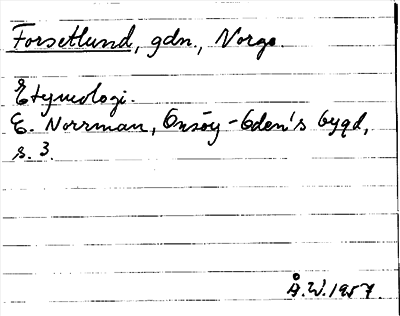 Forsetlund, gdn., Norge.
Etymologi.
E. Norrman, Onsøy-Odens bygd,
s. 3.
Å.W. 1957.